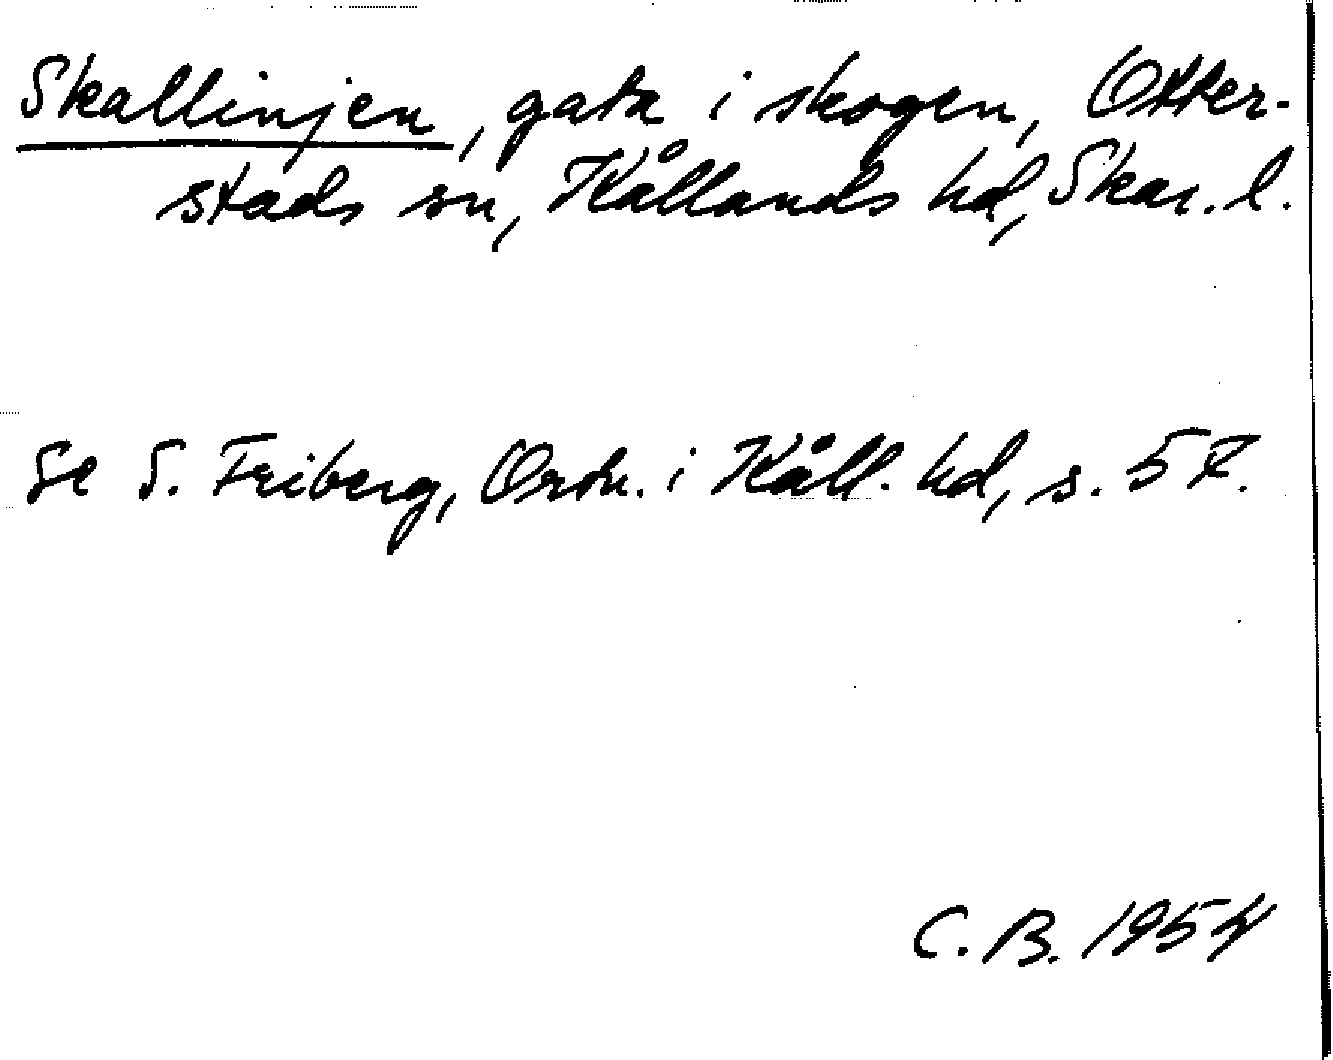 Skallinjen, gata i skogen, Otter-
stads sn, Kållands hd, Skar. l.
Se S. Friberg, Ortn. i Kåll. hd, s. 57.
C. B. 1954